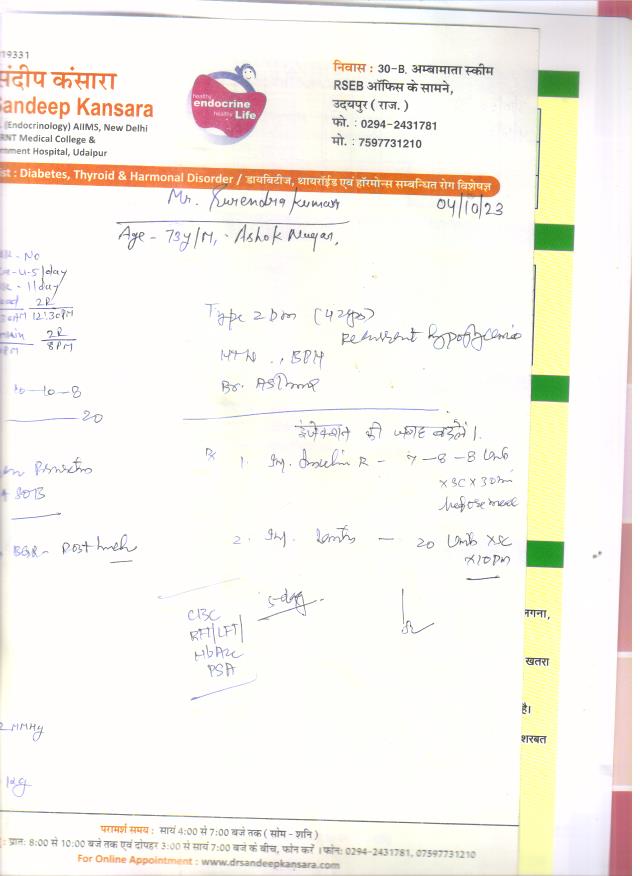 19331
संदीप कंसारा
Sandeep Kansara
(Endocrinology) AIIMS, New Delhi
RNT Medical College &
nment Hospital, Udaipur
healthy
endocrine
healthy Life
निवास : 30-B, अम्बामाता स्कीम
RSEB ऑफिस के सामने,
उदयपुर ( राज. )
फो. : 0294-2431781
मो. : 7597731210
ist : Diabetes, Thyroid & Harmonal Disorder / डायबिटीज, थायरॉईड एवं हॉरमोन्स सम्बन्धित रोग विशेषज्ञ
Mr. Surendra Kumar
04/10/23
Age - 73y/M, - Ashok Nagar,
- No
- 4-5/day
- 1/day
2R
12:30PM
2R
8PM
10-10-8
20
SOB
BGR - Post lunch
Type 2 Dm (42yrs)
Recurrent hypoglycemia
HTN , BPH
Br. Asthma
इंजेक्शन की जगह बदलें।
Rx 1. Inj. Insulin R - 7-8-8 Unit
x SC x 30 min
before meal
2. Inj. Lantus - 20 Units x SC
x 10 pm
5-day
CBC
RFT/LFT/
HbA1c
PSA
2 MMHg
kg
लगना,
खतरा
है।
शरबत
परामर्श समय : सायं 4:00 से 7:00 बजे तक ( सोम - शनि )
: प्रात: 8:00 से 10:00 बजे तक एवं दोपहर 3:00 से सायं 7:00 बजे के बीच, फोन करें । फोन: 0294-2431781, 07597731210
For Online Appointment : www.drsandeepkansara.com